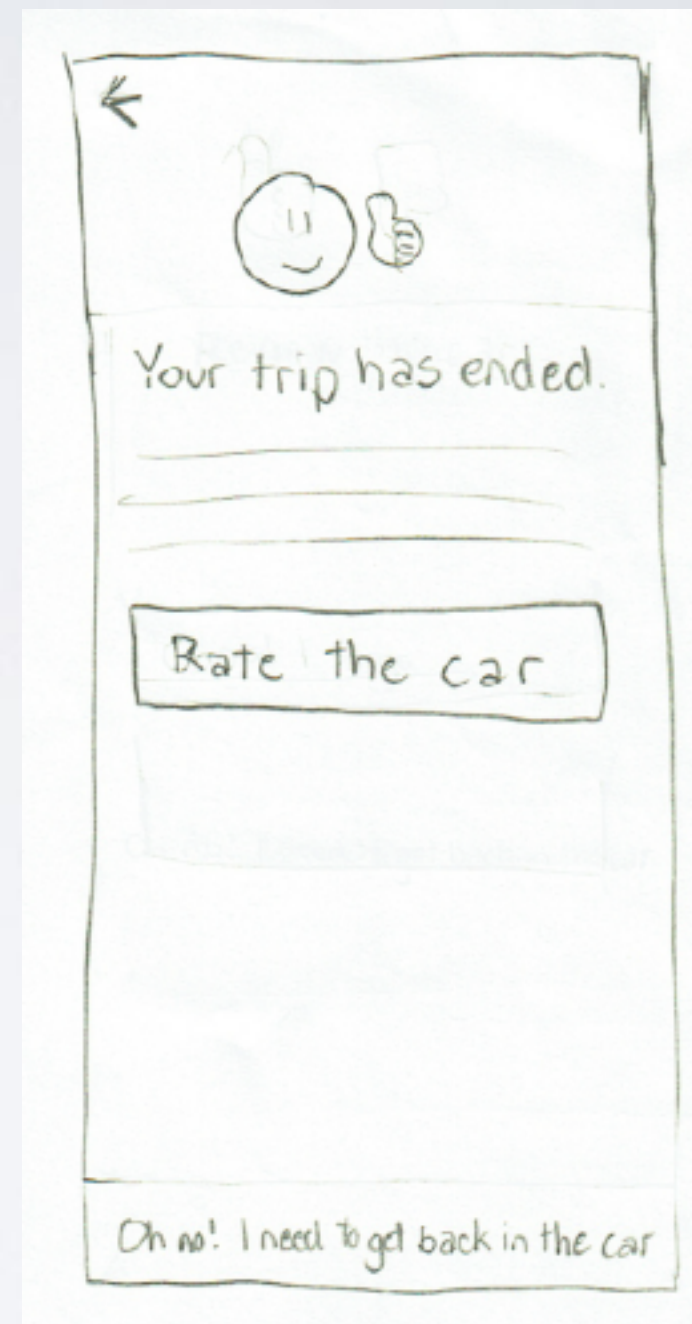 Your trip has ended.
Rate the car
Oh no! I need to get back in the car